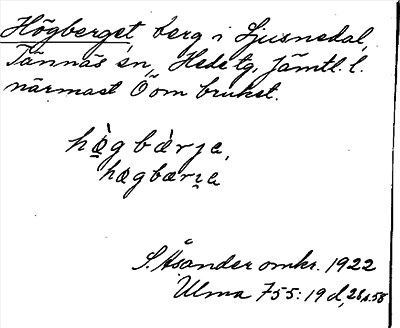 Högberget, berg i Ljusnedal,
Tännäs sn, Hede tg. Jämtl. l.
närmast Ö om bruket.
hò̲g bæ̀rje,
hægbærje
S. Åsander omkr. 1922
Ulma 755:19 d, 28 s. 58